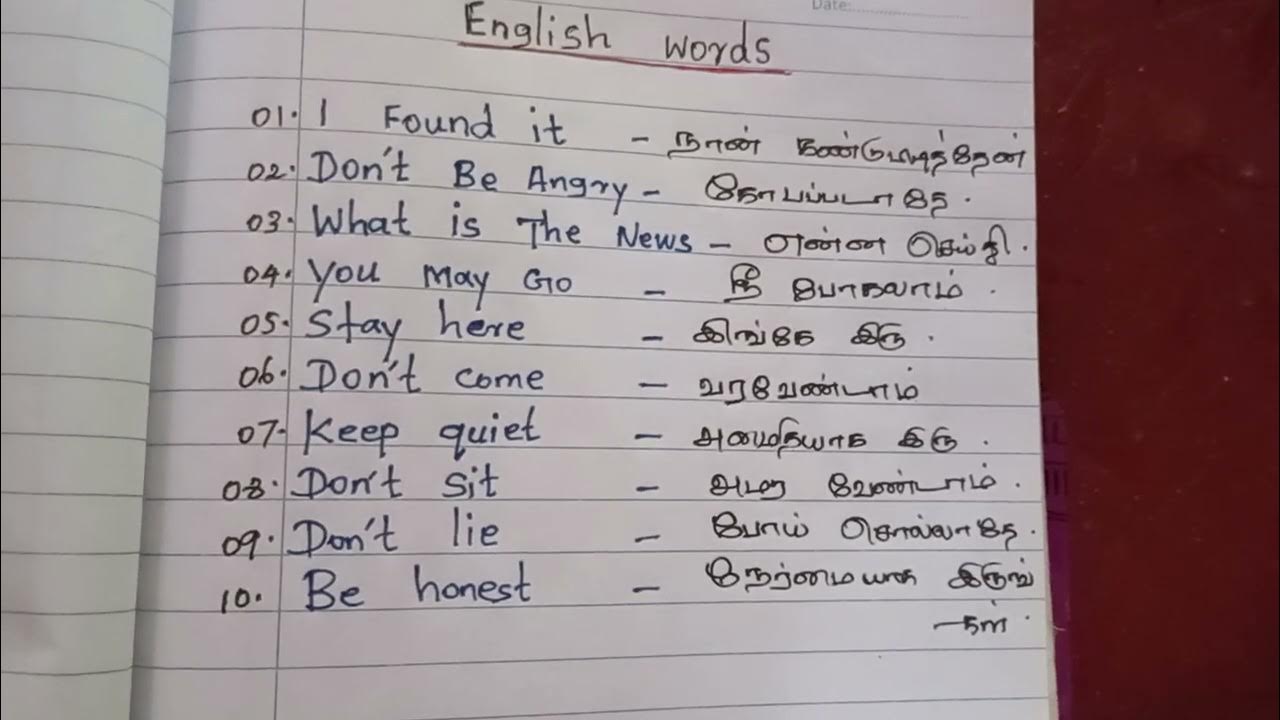 Date:
English words
01. I Found it - நான் கண்டுபிடித்தேன்
02. Don't Be Angry - கோபப்படாதே.
03. What is The News - என்ன செய்தி.
04. You May Go - நீ போகலாம்.
05. Stay here - இங்கே இரு.
06. Don't come - வரவேண்டாம்
07. Keep quiet - அமைதியாக இரு.
08. Don't sit - அமர வேண்டாம்.
09. Don't lie - பொய் சொல்லாதே.
10. Be honest - நேர்மையாக இருங்
-கள்.